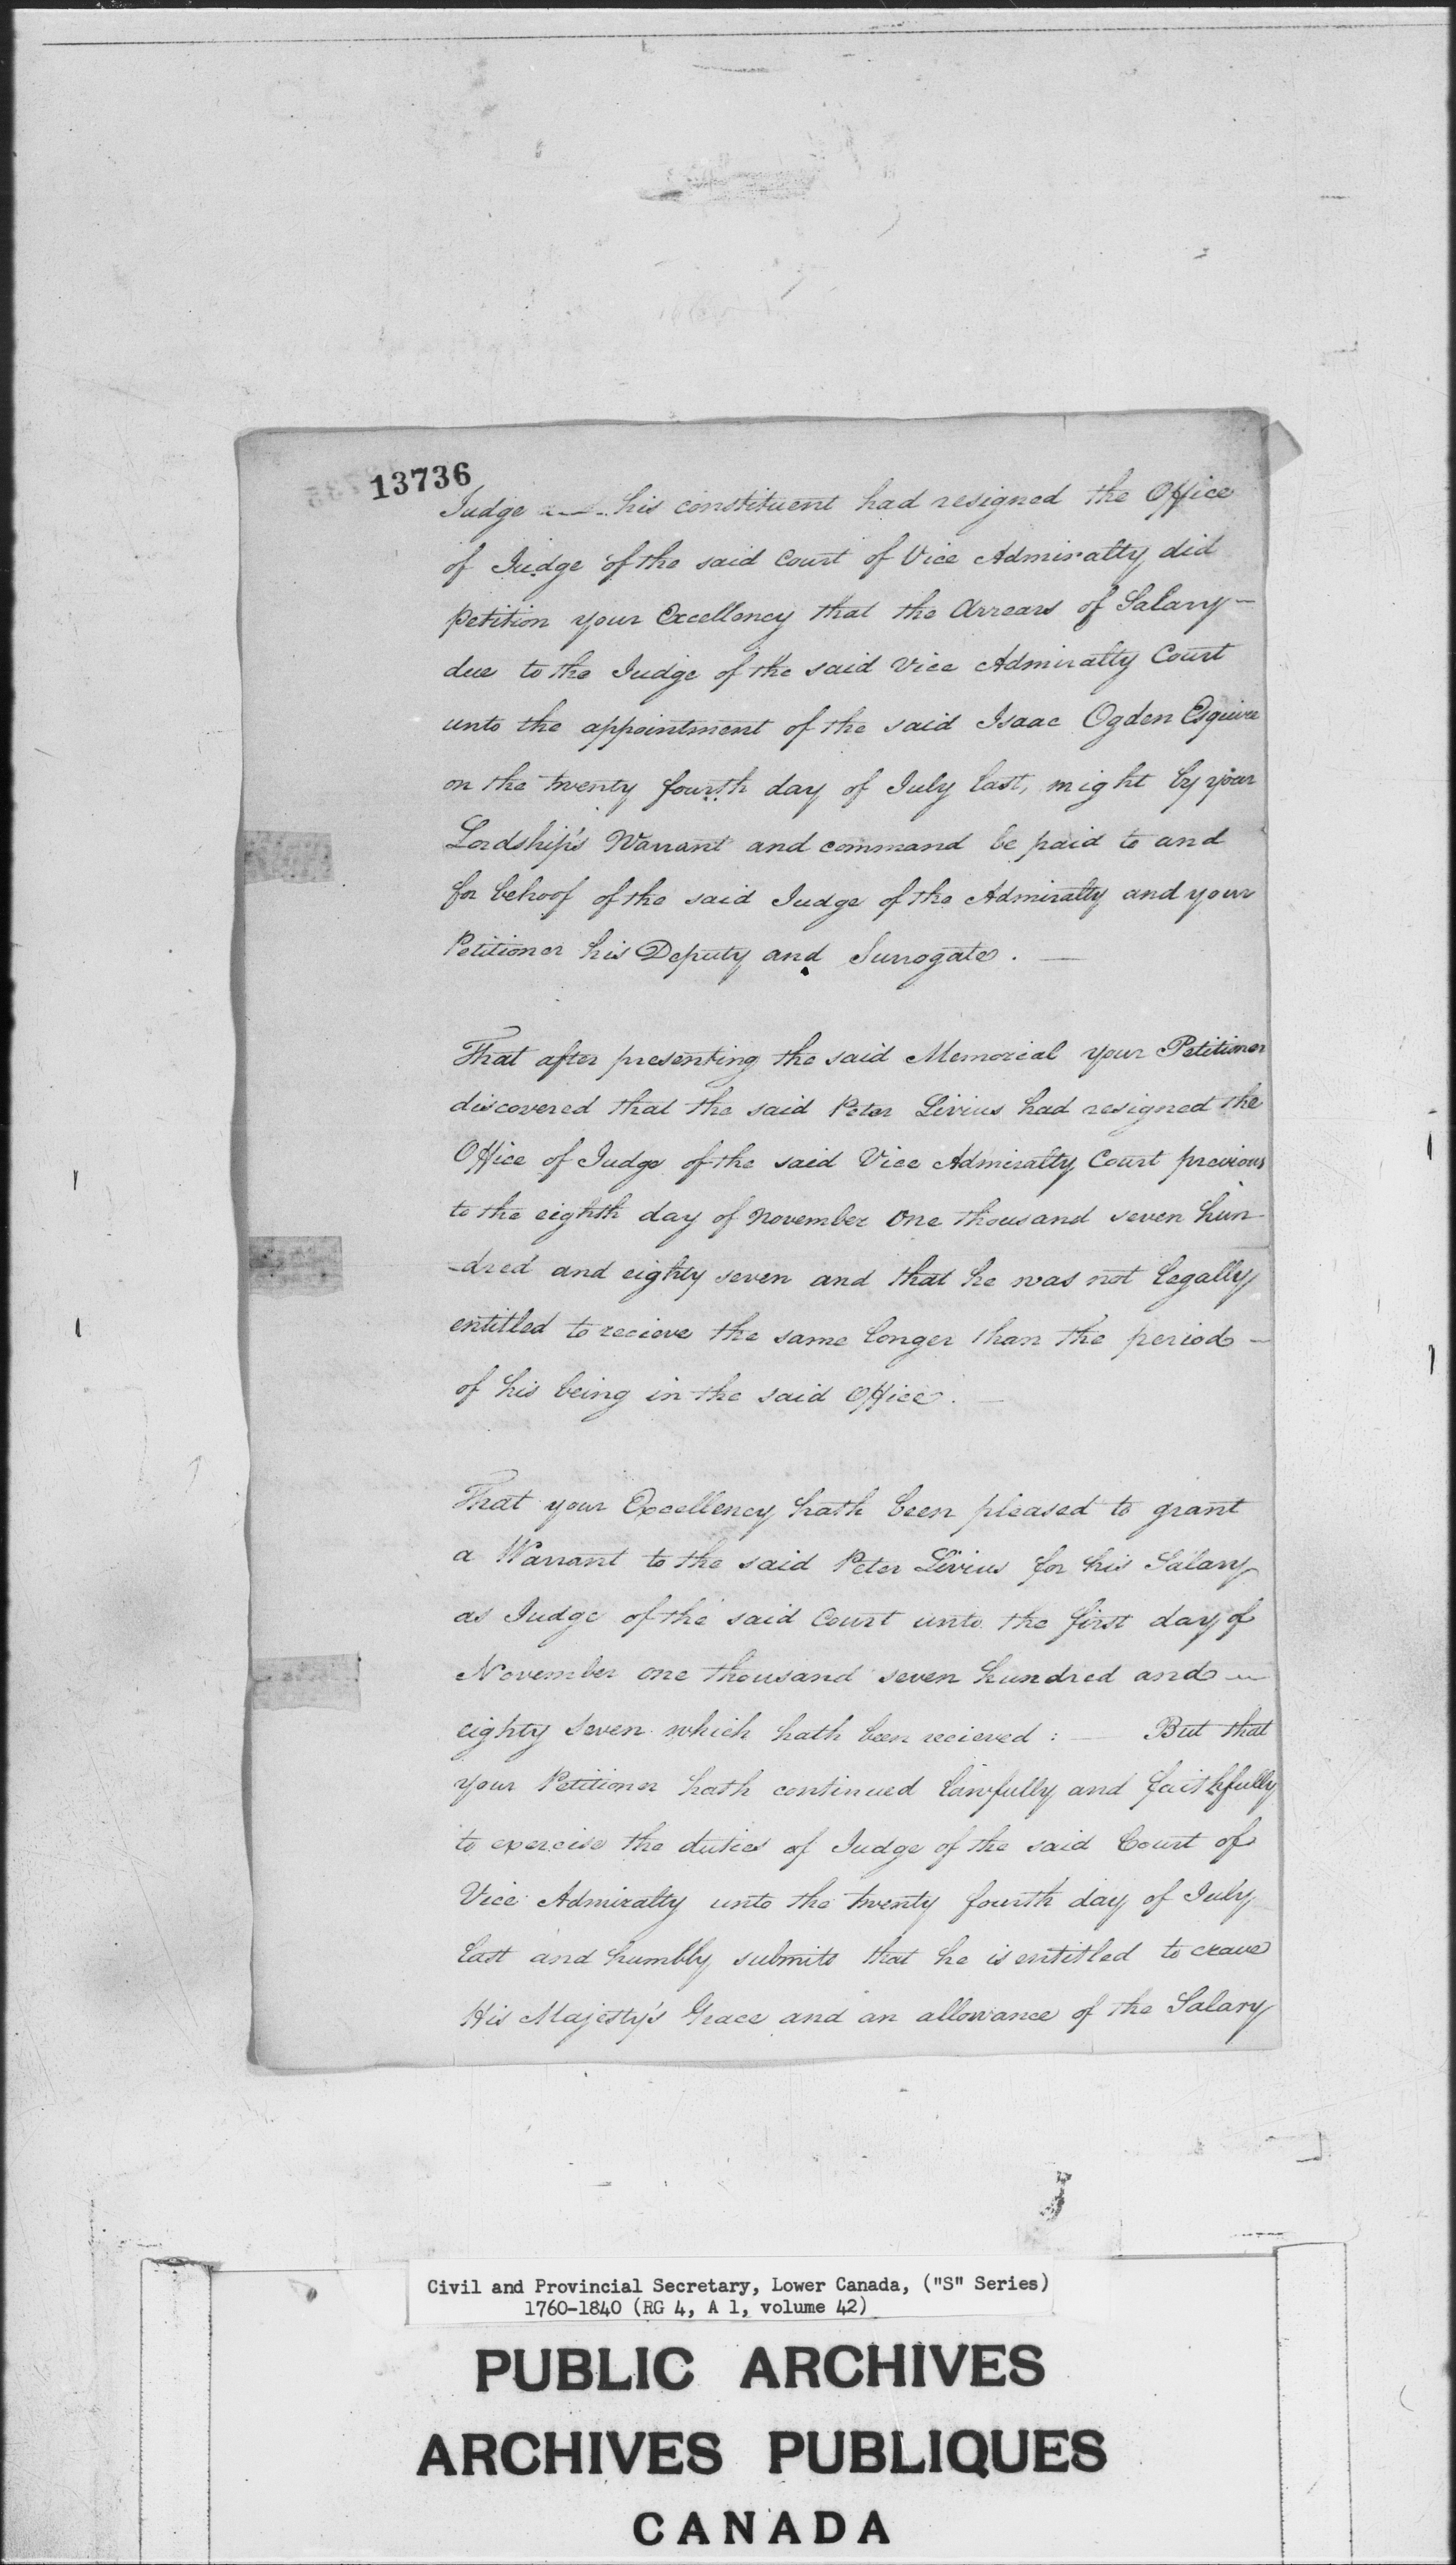 13736
Judge his constituent had resigned the Office
of Judge of the said Court of Vice Admiralty did
petition your Excellency that the Arrears of Salary -
due to the Judge of the said Vice Admiralty Court
unto the appointment of the said Isaac Ogden Esquire
on the twenty fourth day of July last, might by your
Lordship's Warrant and command be paid to and
for behoof of the said Judge of the Admiralty and your
Petitioner his Deputy and Surrogate. —
That after presenting the said Memorial your Petitioner
discovered that the said Peter Livius had resigned the
Office of Judge of the said Vice Admiralty Court previous
to the eighth day of November One thousand seven hun
-dred and eighty seven and that he was not legally
entitled to recieve the same longer than the period —
of his being in the said Office. —
That your Excellency hath been pleased to grant
a Warrant to the said Peter Livius for his Salary
as Judge of the said Court unto the first day of
November one thousand seven hundred and —
eighty seven which hath been recieved : — But that
your Petitioner hath continued lawfully and faithfully
to exercise the duties of Judge of the said Court of
Vice Admiralty unto the twenty fourth day of July
last and humbly submits that he is entitled to crave
His Majesty's Grace and an allowance of the Salary
Civil and Provincial Secretary, Lower Canada, ("S" Series)
1760-1840 (RG 4, A 1, volume 42)
PUBLIC ARCHIVES
ARCHIVES PUBLIQUES
CANADA